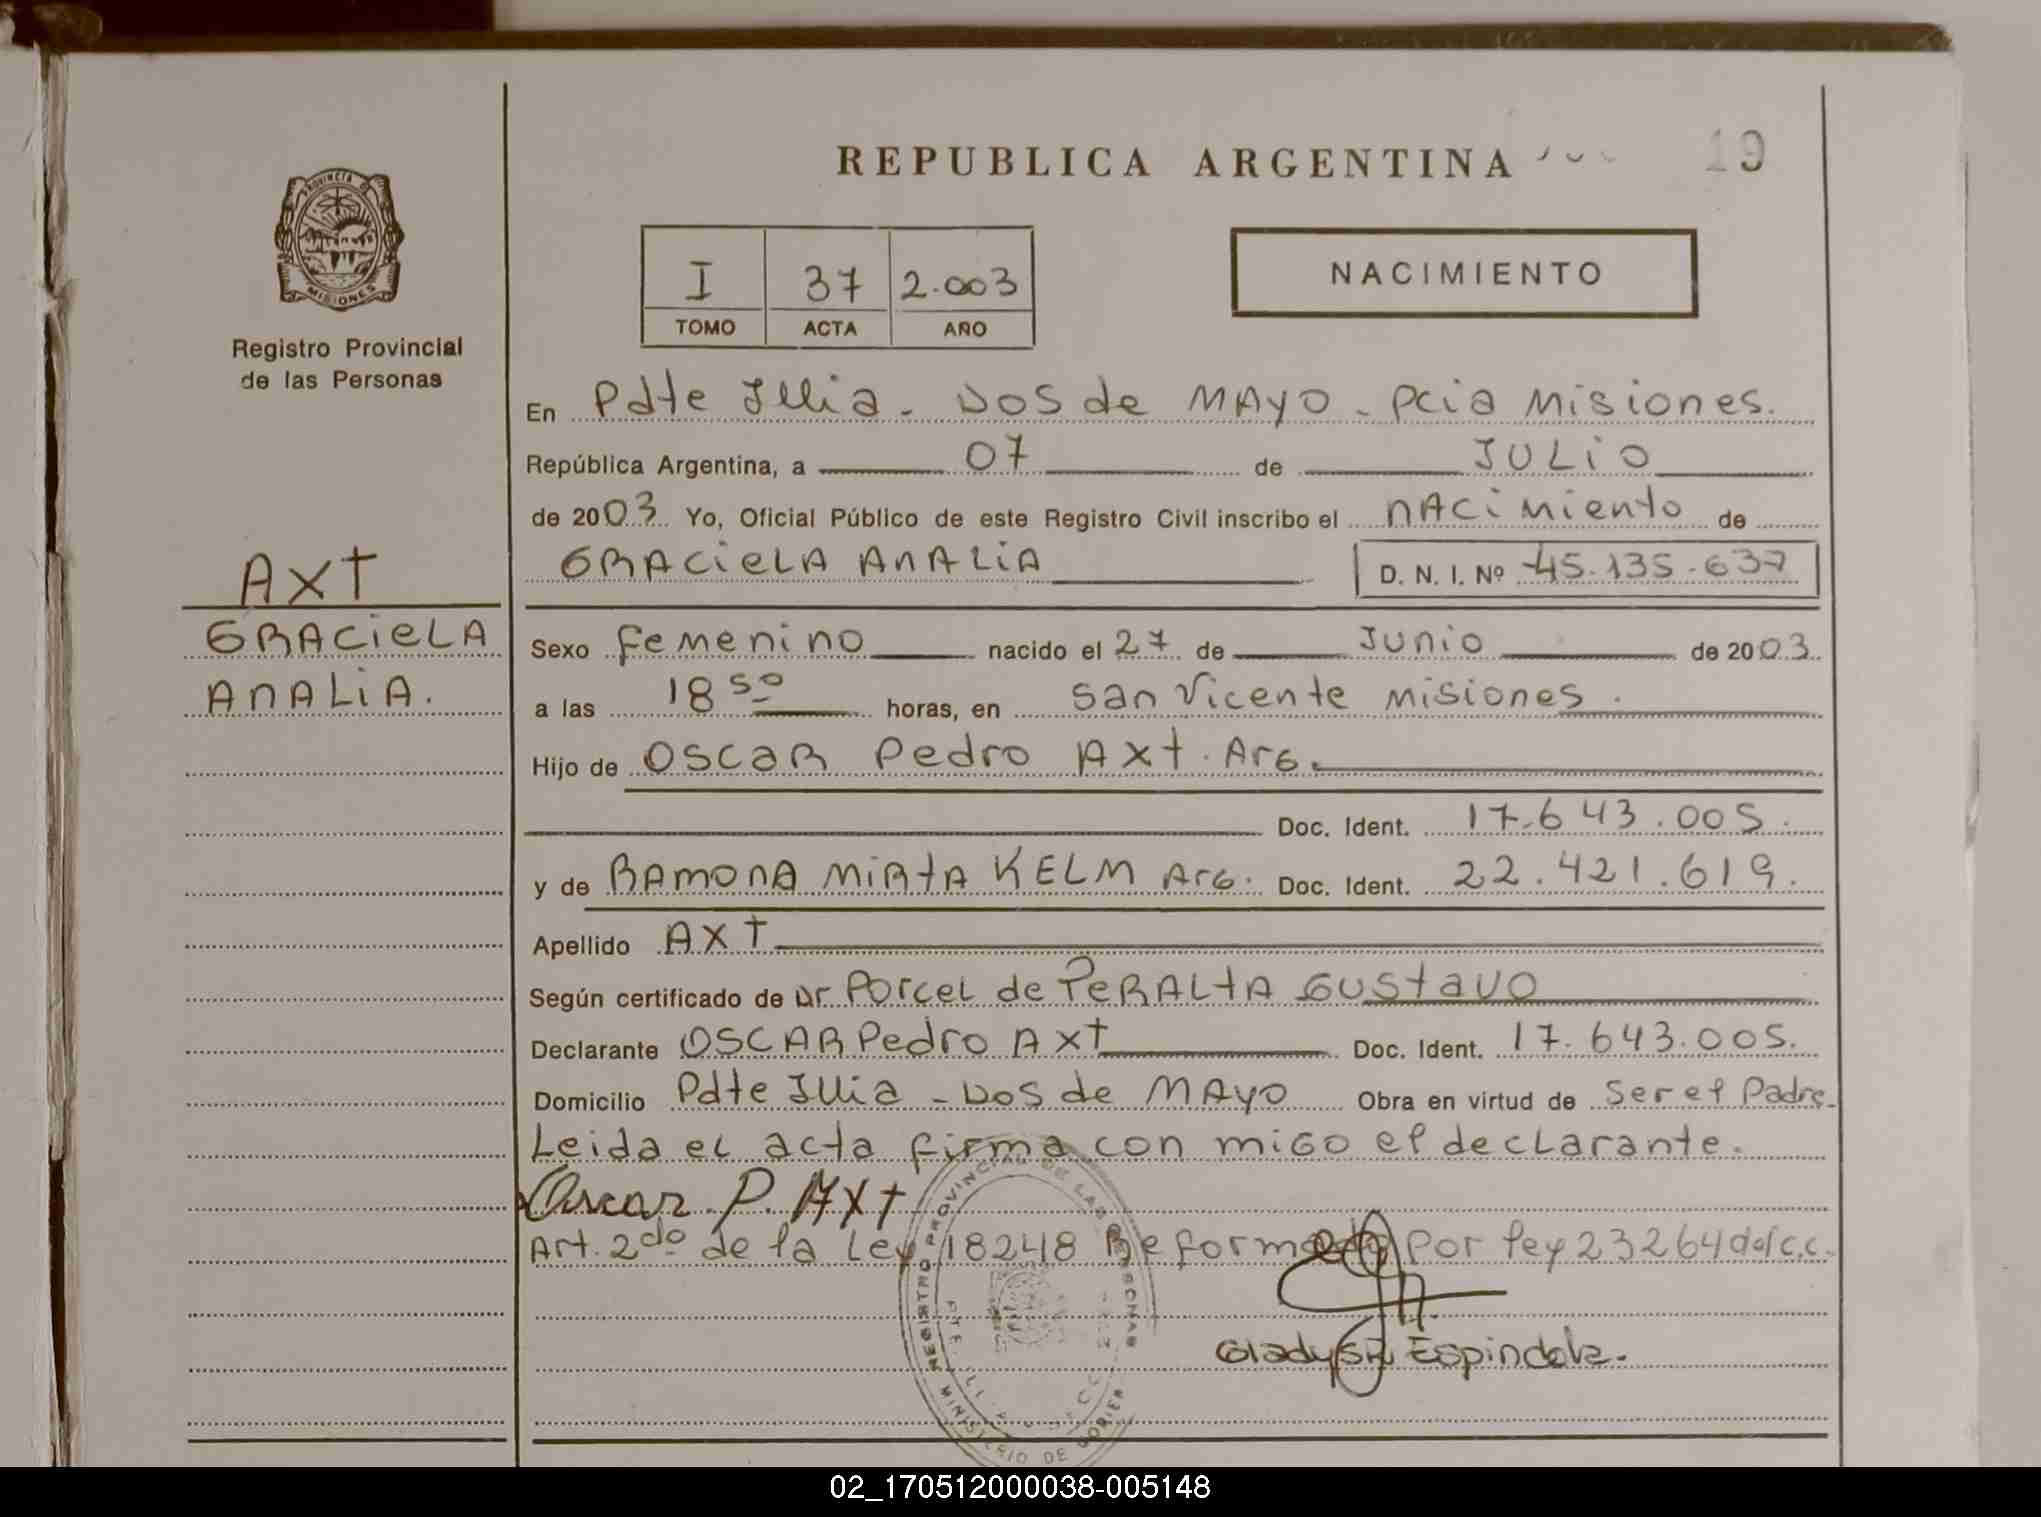 REPUBLICA ARGENTINA
19
PROVINCIA DE
MISIONES
Registro Provincial
de las Personas
I 37 2.003
TOMO ACTA AÑO
NACIMIENTO
En Pdte Illia - Dos de MAYO - Pcia Misiones.
República Argentina, a 07 de JULIO
de 2003 Yo, Oficial Público de este Registro Civil inscribo el NACimiento de
GRACIELA ANALIA D. N. I. Nº 45.135.637
AXT
GRACIELA
ANALIA.
Sexo Femenino nacido el 27 de JUNIO de 2003
a las 18 50 horas, en San Vicente Misiones.
Hijo de OSCAR Pedro AXT. Arg.
Doc. Ident. 17.643.005.
y de RAMONA MIRTA KELM Arg. Doc. Ident. 22.421.619.
Apellido AXT
Según certificado de Dr Porcel de PERALTA GUSTAVO
Declarante OSCAR Pedro AXT Doc. Ident. 17.643.005.
Domicilio Pdte Illia - Dos de MAYO Obra en virtud de Ser el Padre.
Leida el acta firma con migo el declarante.
Oscar P. AXT
Art. 2do de la Ley 18248 Reformada por ley 23264 del c.c.
REGISTRO PROVINCIAL DE LAS PERSONAS
MINISTERIO DE GOBIER
Gladys R Espindola.
02_170512000038-005148